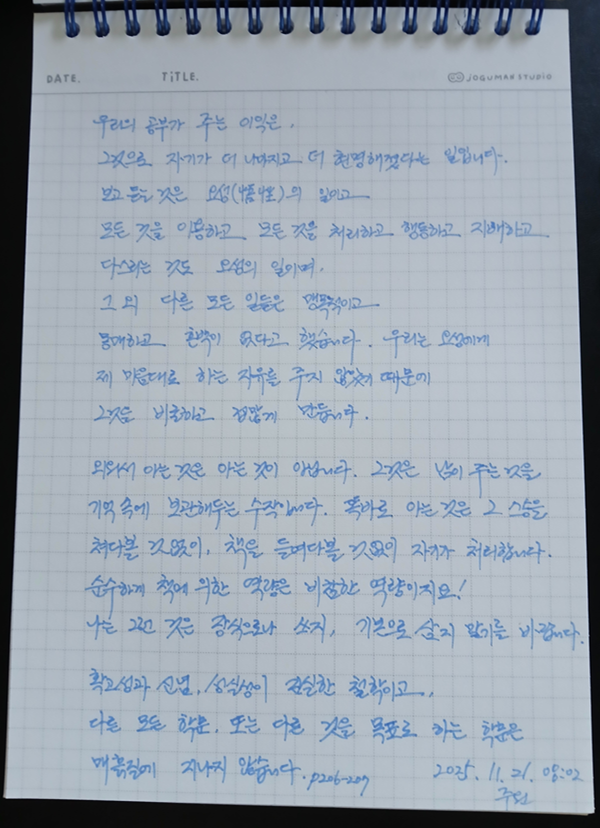 DATE. TiTLE. JOGUMAN STUDIO
우리의 공부가 주는 이익은,
그것으로 자기가 더 나아지고 더 현명해졌다는 일입니다.
보고 듣는 것은 오성(悟性)의 일이고
모든 것을 이용하고 모든 것을 처리하고 행동하고 지배하고
다스리는 것도 오성의 일이며,
그 외 다른 모든 일들은 맹목적이고
몽매하고 혼백이 없다고 했습니다. 우리는 오성에게
제 마음대로 하는 자유를 주지 않았기 때문에
그것을 비굴하고 겁많게 만듭니다.
외워서 아는 것은 아는 것이 아닙니다. 그것은 남이 주는 것을
기억 속에 보관해두는 수작입니다. 똑바로 아는 것은 그 스승을
쳐다볼 것없이, 책을 들여다볼 것없이 자기가 처리합니다.
순수하게 책에 의한 역량은 비참한 역량이지요!
나는 그런 것은 장식으로나 쓰지, 기본으로 삼지 말기를 바랍니다.
확고성과 신념, 성실성이 진실한 철학이고,
다른 모든 학문, 또는 다른 것을 목표로 하는 학문은
매흙질에 지나지 않습니다. p206-207 2025. 11. 21. 08:02